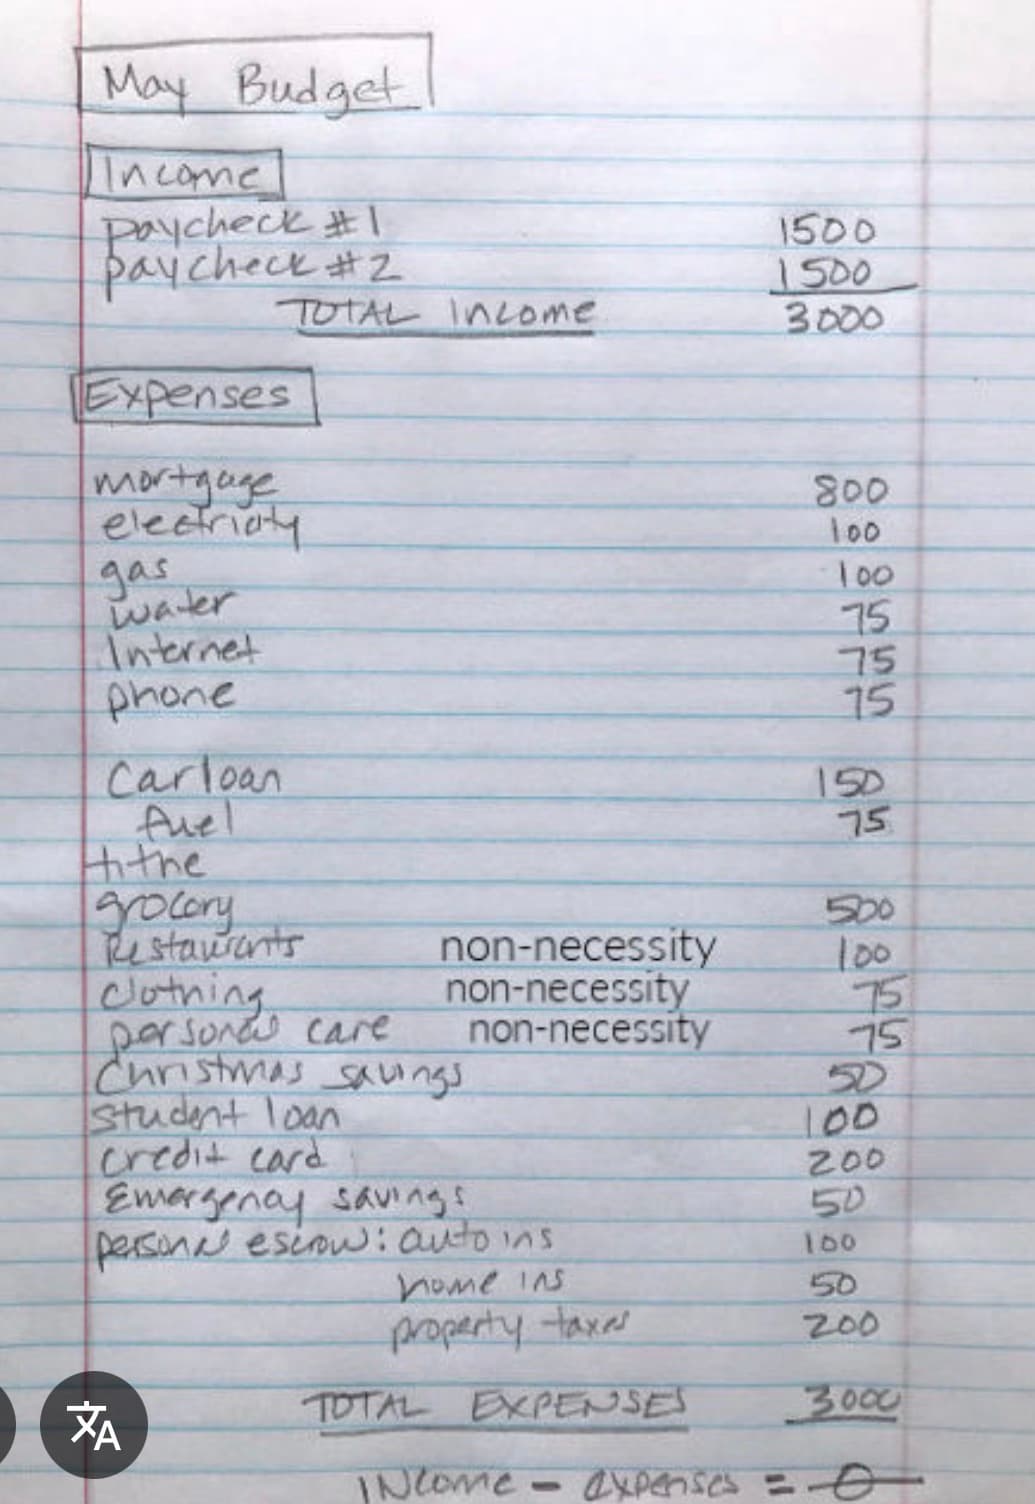 May Budget
Income
paycheck #1 1500
paycheck #2 1500
TOTAL Income 3000
Expenses
mortgage 800
electricity 100
gas 100
water 75
Internet 75
phone 75
Car loan 150
fuel 75
tithe
grocery 500
Restaurants non-necessity 100
clothing non-necessity 75
personal care non-necessity 75
Christmas savings 50
student loan 100
credit card 200
Emergency savings 50
personal escrow: auto ins 100
home ins 50
property taxes 200
TOTAL EXPENSES 3000
INcome - expenses = 0
文A